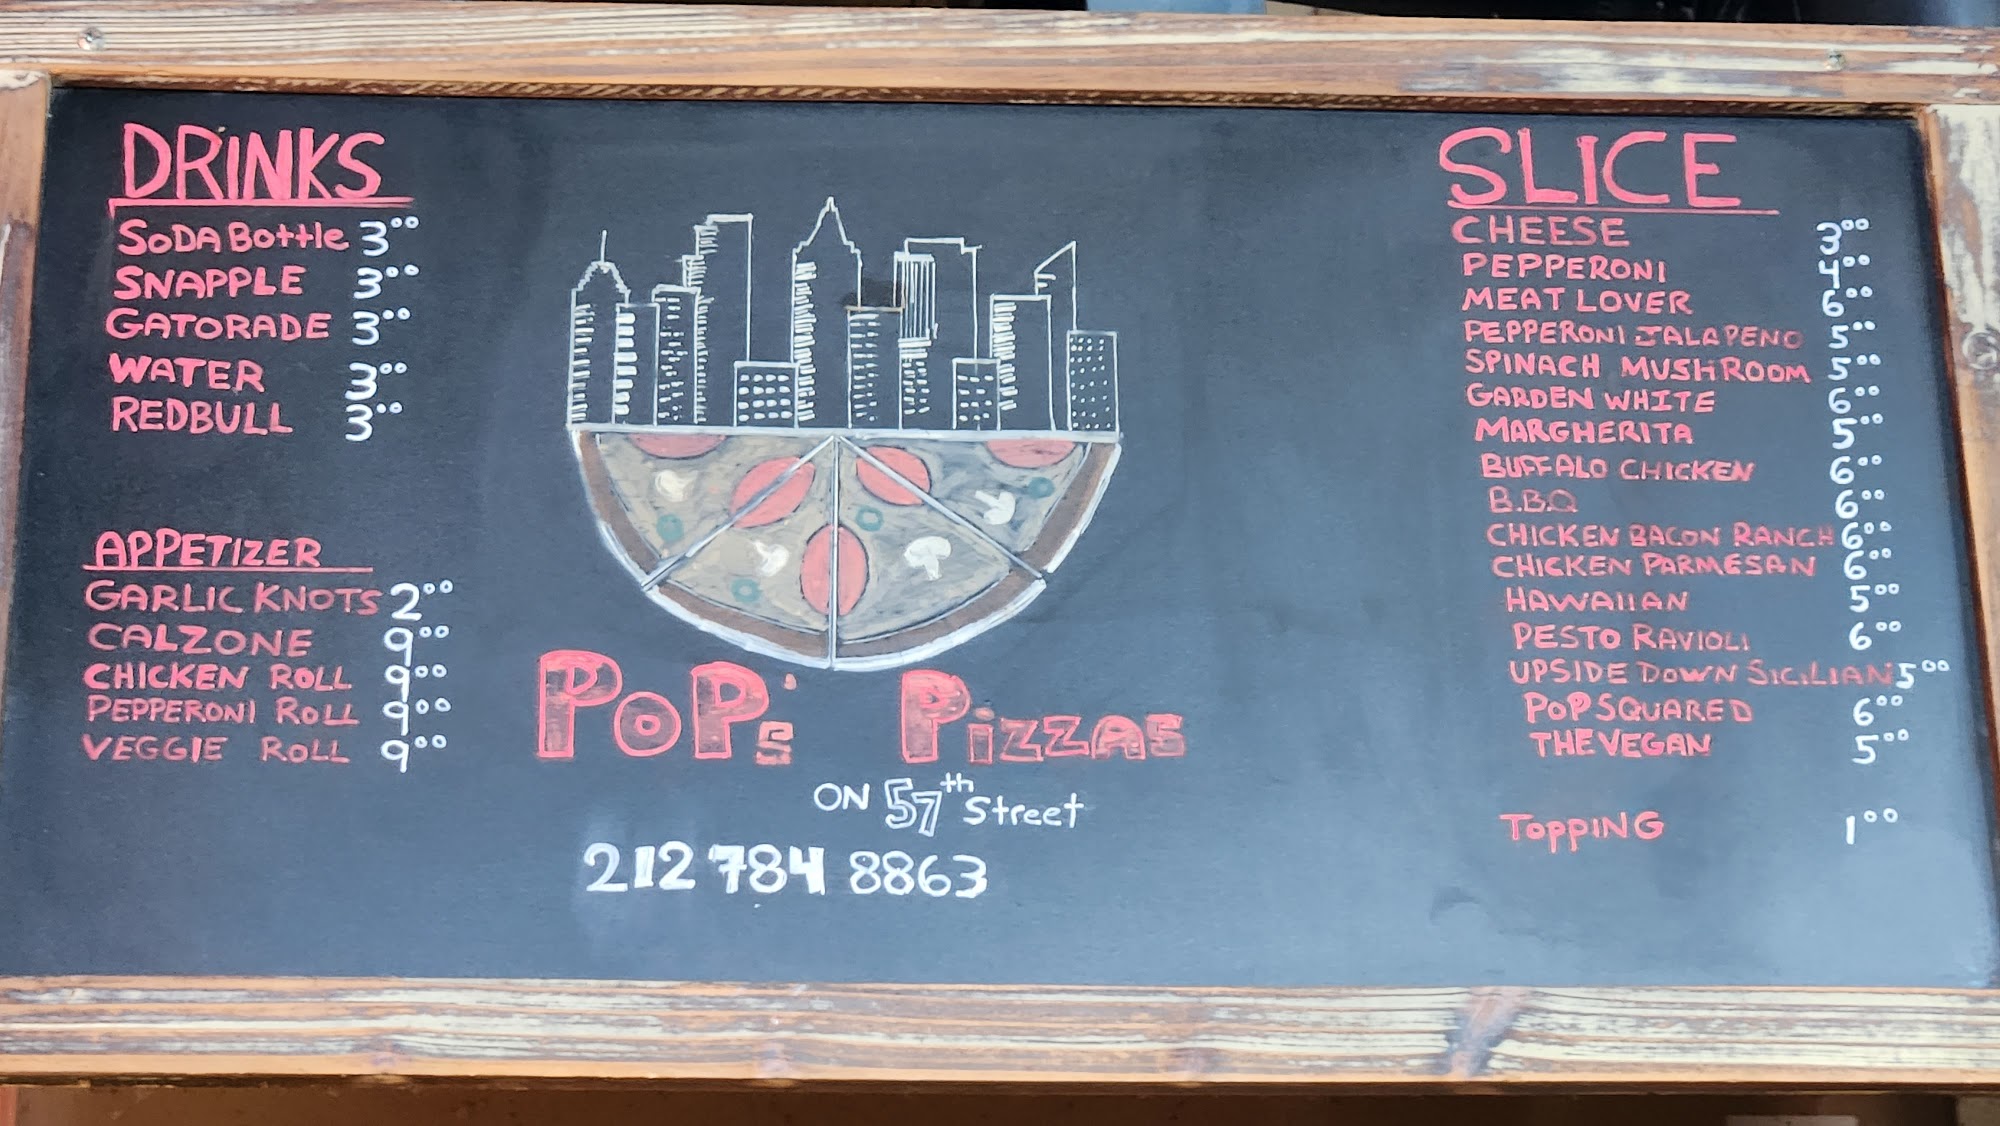 DRiNKS
SoDA Bottle 3⁰⁰
SNAPPLE 3⁰⁰
GATORADE 3⁰⁰
WATER 3⁰⁰
REDBULL 3⁰⁰
APPETIZER
GARLIC KNOTS 2⁰⁰
CALZONE 9⁰⁰
CHICKEN ROLL 9⁰⁰
PEPPERONI ROLL 9⁰⁰
VEGGIE ROLL 9⁰⁰
PoP's Pizzas
ON 57th Street
212 784 8863
SLICE
CHEESE 3⁰⁰
PEPPERONI 4⁰⁰
MEAT LOVER 6⁰⁰
PEPPERONI JALAPENO 5⁰⁰
SPINACH MUSHROOM 5⁰⁰
GARDEN WHITE 6⁰⁰
MARGHERITA 5⁰⁰
BUFFALO CHICKEN 6⁰⁰
B.B.Q 6⁰⁰
CHICKEN BACON RANCH 6⁰⁰
CHICKEN PARMESAN 6⁰⁰
HAWAIIAN 5⁰⁰
PESTO RAVIOLI 6⁰⁰
UPSIDE DOWN SICILIAN 5⁰⁰
POP SQUARED 6⁰⁰
THE VEGAN 5⁰⁰
TOPPING 1⁰⁰